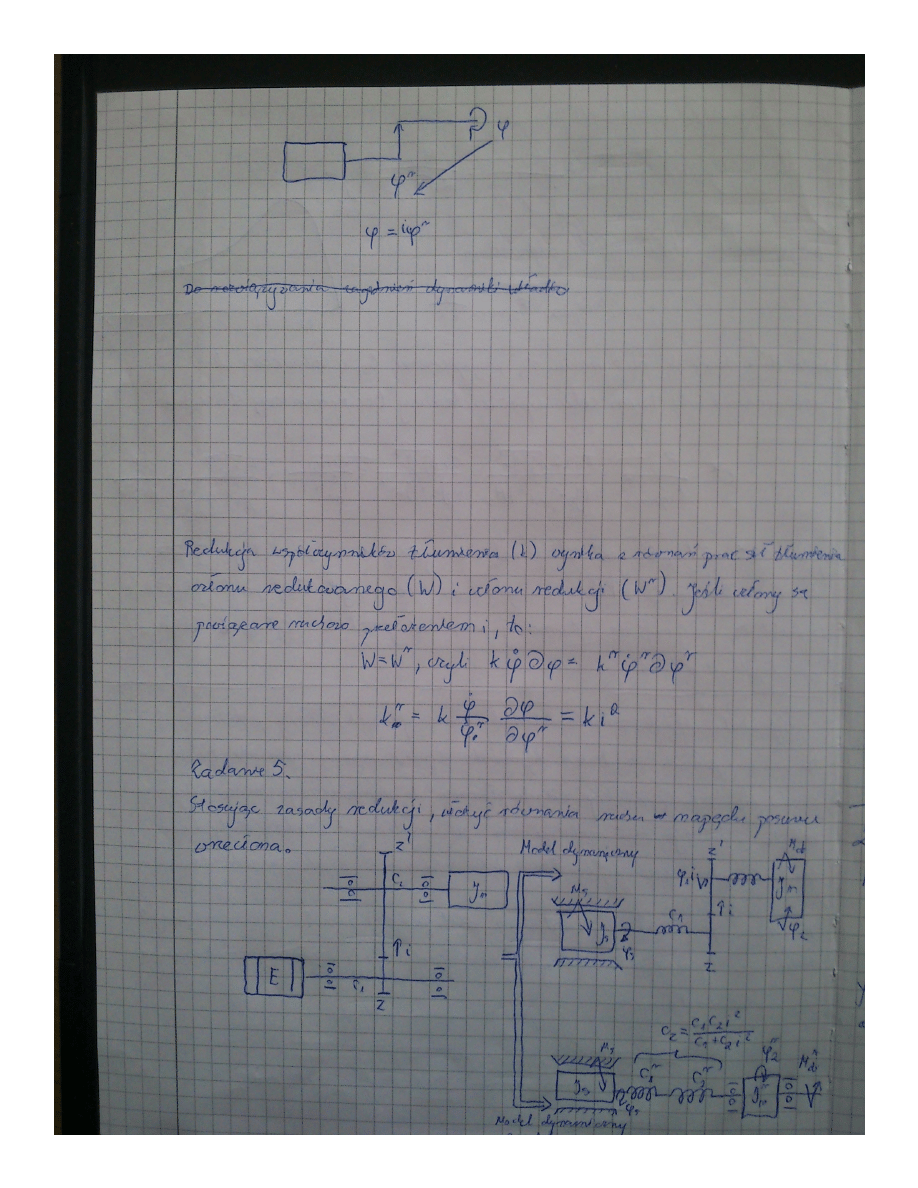 φ
φʳ
φ = iφʳ
Do rozwiązywania zagadnień dynamiki układu
Redukcja współczynników tłumienia (k) wynika z równań prac sił tłumienia
członu redukowanego (W) i członu redukcji (Wʳ). Jeśli człony są
powiązane ruchowo przełożeniem i, to:
W=Wʳ, czyli k φ̇ ∂φ = kʳ φ̇ʳ ∂φʳ
kʳ = k φ̇/φ̇ʳ ∂φ/∂φʳ = k i²
Zadanie 5.
Stosując zasady redukcji, ułożyć równania ruchu napędu posuwu
wrzeciona.
z'
Model dynamiczny
z'
C₂
Jₘ
φ₁i
Jₘ
Mₛ
C₁
↑i
Jₛ
φₛ
φ₂
↑i
E
C₁
z
z
C_z = C₁C₂i²/(C₁+C₂i²)
φ₂ʳ
Mₛ
C₁ʳ
C₂ʳ
Jₛ
Jₘʳ
φₛ
Model dynamiczny